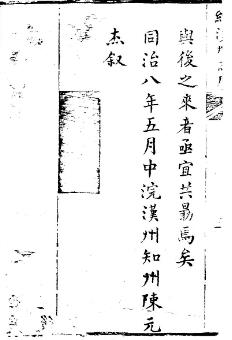 與後之來者亟宜共勗焉矣
同治八年五月中浣漢州知州陳元
杰叙